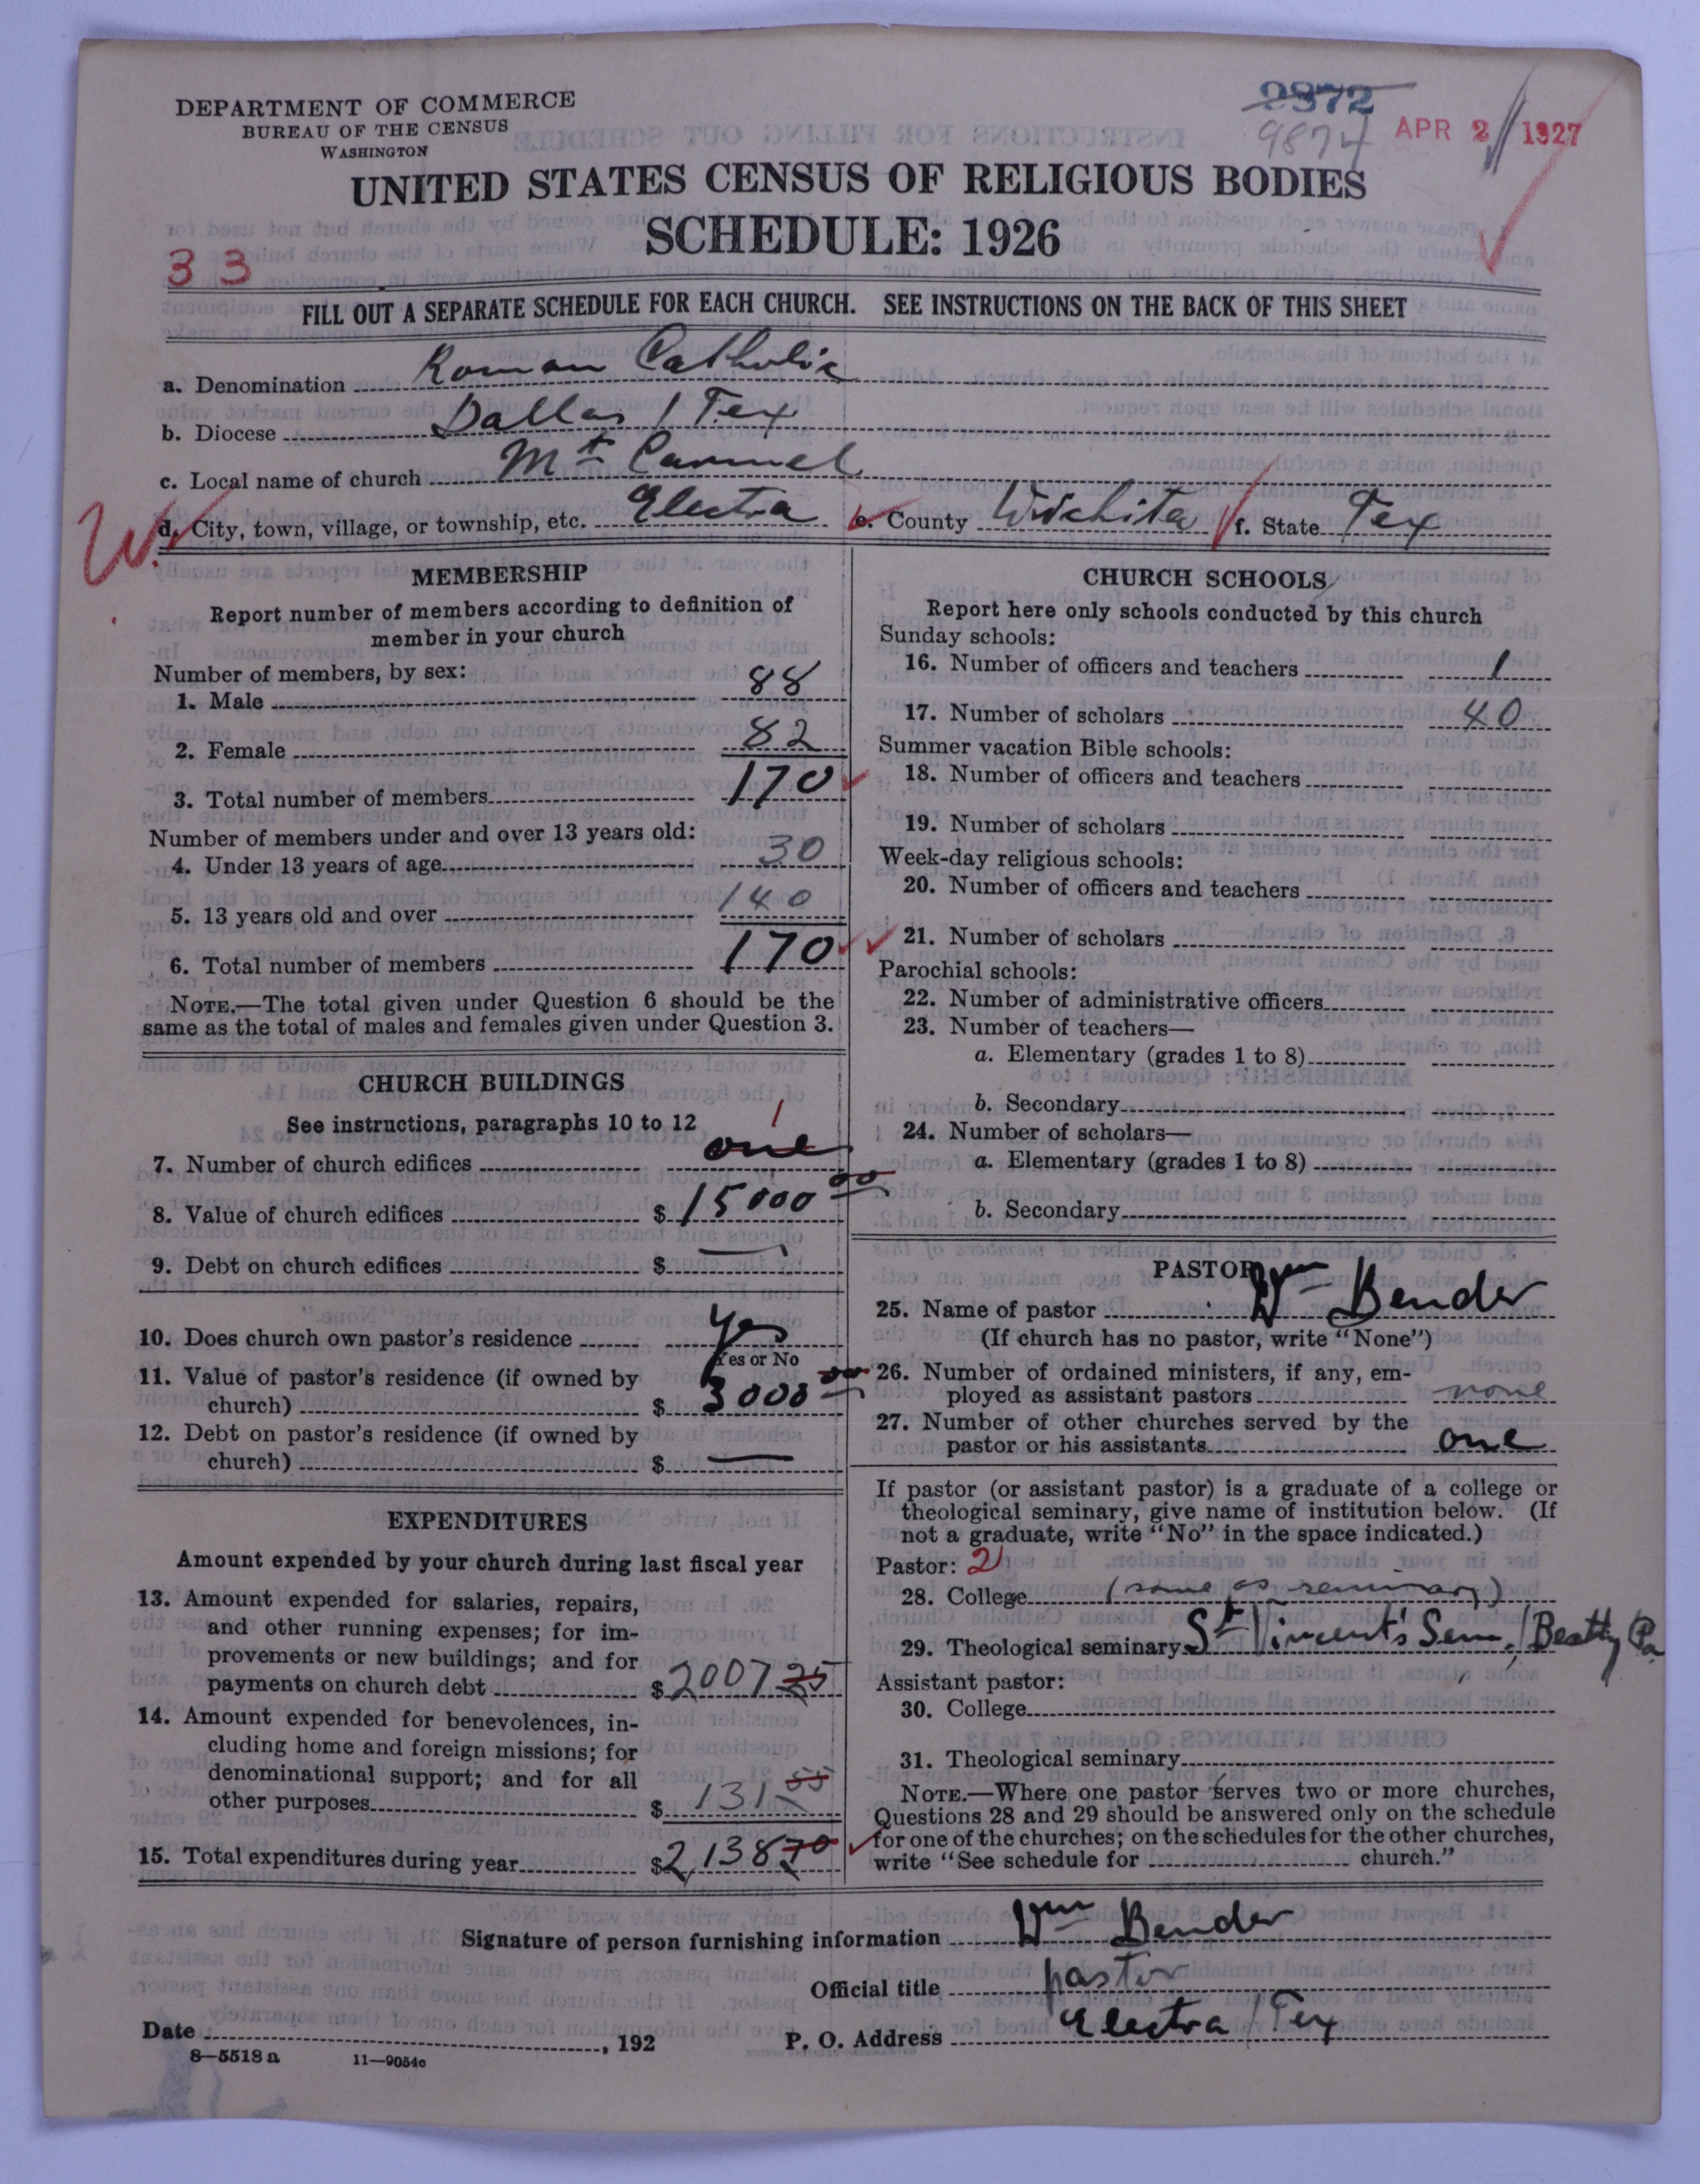 DEPARTMENT OF COMMERCE
BUREAU OF THE CENSUS
WASHINGTON
9872
9874
APR 2 1927
UNITED STATES CENSUS OF RELIGIOUS BODIES
SCHEDULE: 1926
33
FILL OUT A SEPARATE SCHEDULE FOR EACH CHURCH. SEE INSTRUCTIONS ON THE BACK OF THIS SHEET
a. Denomination Roman Catholic
b. Diocese Dallas / Tex
c. Local name of church Mt Carmel
W.
d. City, town, village, or township, etc. Electra e. County Wichita f. State Tex
MEMBERSHIP
Report number of members according to definition of
member in your church
Number of members, by sex:
1. Male 88
2. Female 82
3. Total number of members 170
Number of members under and over 13 years old:
4. Under 13 years of age 30
5. 13 years old and over 140
6. Total number of members 170
NOTE.—The total given under Question 6 should be the
same as the total of males and females given under Question 3.
CHURCH BUILDINGS
See instructions, paragraphs 10 to 12
1
7. Number of church edifices one
8. Value of church edifices $ 15000 00
9. Debt on church edifices $ —
10. Does church own pastor's residence Yes
Yes or No
11. Value of pastor's residence (if owned by
church) $ 3000 00
12. Debt on pastor's residence (if owned by
church) $ —
EXPENDITURES
Amount expended by your church during last fiscal year
13. Amount expended for salaries, repairs,
and other running expenses; for im-
provements or new buildings; and for
payments on church debt $ 2007 25
14. Amount expended for benevolences, in-
cluding home and foreign missions; for
denominational support; and for all
other purposes $ 131 55
15. Total expenditures during year $ 2,138 70
CHURCH SCHOOLS
Report here only schools conducted by this church
Sunday schools:
16. Number of officers and teachers 1
17. Number of scholars 40
Summer vacation Bible schools:
18. Number of officers and teachers
19. Number of scholars
Week-day religious schools:
20. Number of officers and teachers
21. Number of scholars
Parochial schools:
22. Number of administrative officers
23. Number of teachers—
a. Elementary (grades 1 to 8)
b. Secondary
24. Number of scholars—
a. Elementary (grades 1 to 8)
b. Secondary
PASTOR
25. Name of pastor Wm Bender
(If church has no pastor, write "None")
26. Number of ordained ministers, if any, em-
ployed as assistant pastors none
27. Number of other churches served by the
pastor or his assistants one
If pastor (or assistant pastor) is a graduate of a college or
theological seminary, give name of institution below. (If
not a graduate, write "No" in the space indicated.)
Pastor: 2
28. College (same as seminary)
29. Theological seminary St Vincent's Sem, / Beatty Pa
Assistant pastor:
30. College
31. Theological seminary
NOTE.—Where one pastor serves two or more churches,
Questions 28 and 29 should be answered only on the schedule
for one of the churches; on the schedules for the other churches,
write "See schedule for church."
Signature of person furnishing information Wm Bender
Official title pastor
Date , 192 P. O. Address Electra / Tex
8—5518 a 11—9054c